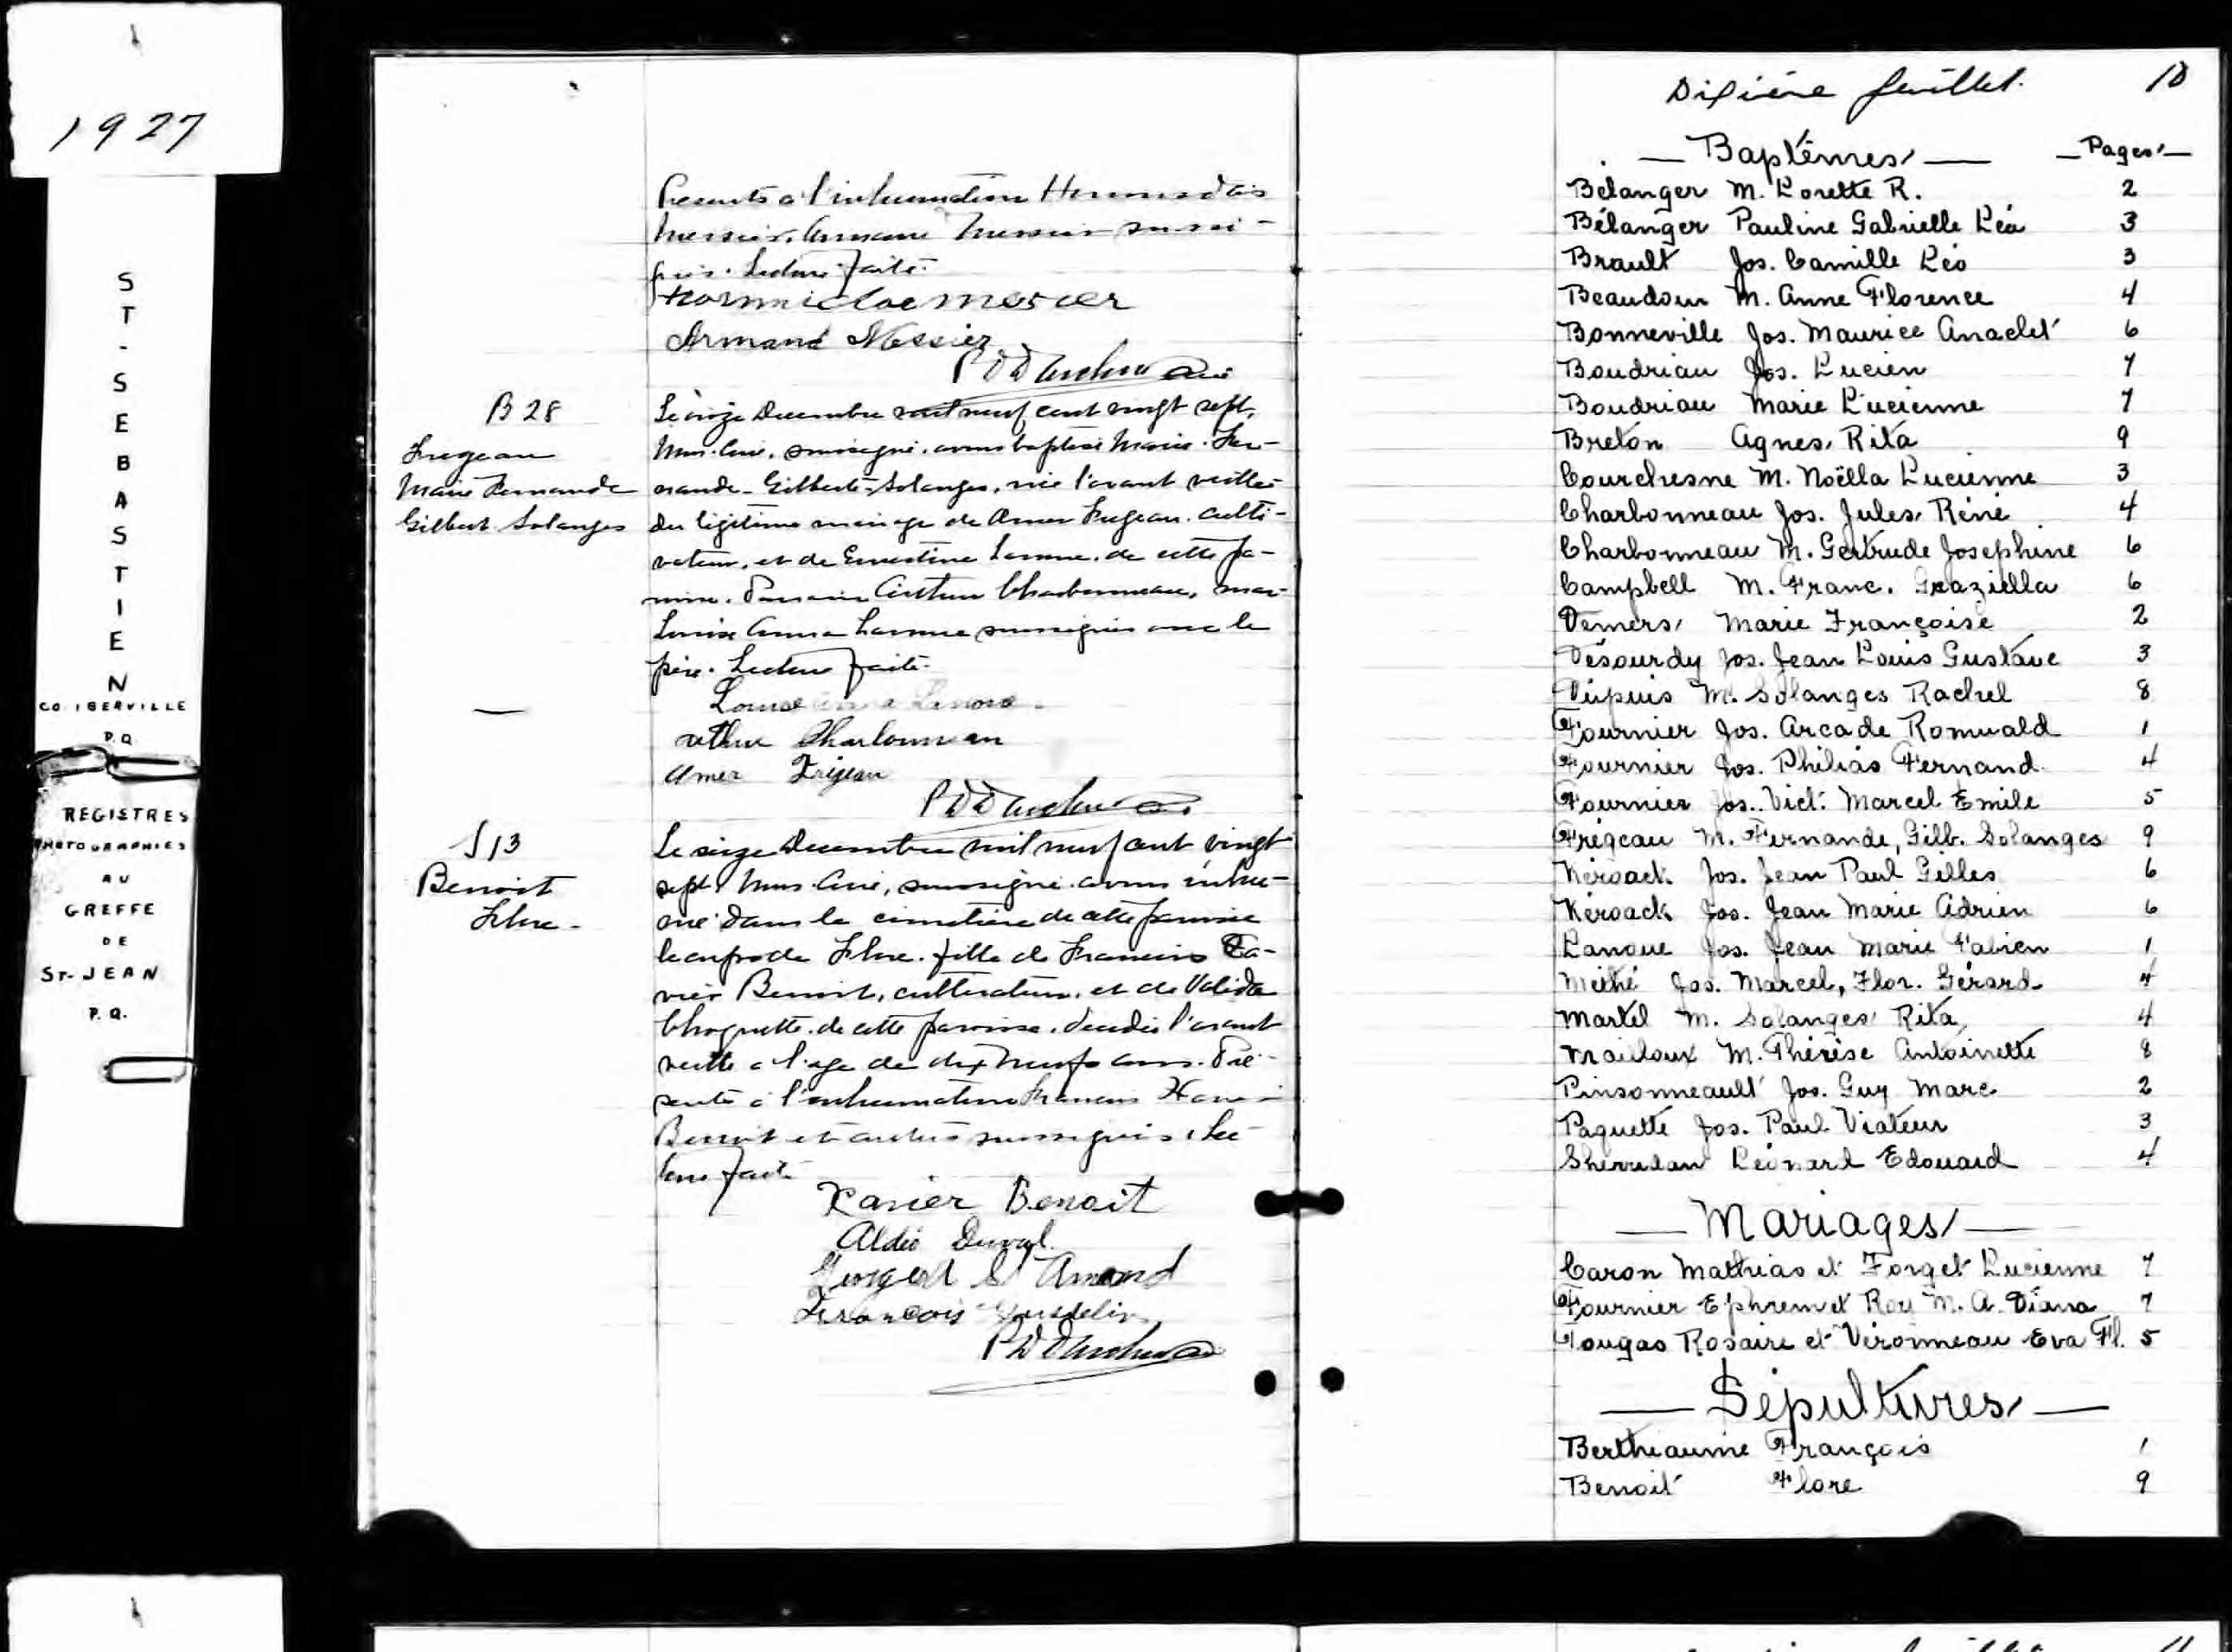 1927
ST-SEBASTIEN
CO. IBERVILLE
P.Q.
REGISTRES
PHOTOGRAPHIES
AU
GREFFE
DE
ST-JEAN
P.Q.
Presents a l'inhumation Hormisdas
Messier, Armand Messier soussi-
gnés. Lecture faite.
Armand Messier
B 28
Fregeau
Marie Fernande
Gilbert Solanges
Le onze Decembre mil neuf cent vingt sept,
Nous. Curé, soussigné, avons baptisé Marie-Fer-
nande-Gilberte-Solanges, née l'avant veille
du légitime mariage de Omer Fregeau, culti-
vateur, et de Ernestine Lanoue, de cette pa-
roisse. Parrain Arthur Charbonneau, mar-
Louise Anna Lanoue soussignés avec le
père. Lecture faite.
Louise Anna Lanoue
Arthur Charbonneau
Omer Frégeau
S 13
Benoit
Flore-
Le seize Decembre mil neuf cent vingt
sept, Nous. Curé, soussigné, avons inhu-
mé dans le cimetière de cette paroisse
le corps de Flore, fille de Francois Xa-
vier Benoit, cultivateur, et de Valida
Choquette de cette paroisse, décédée l'avant
veille a l'age de dix neuf ans. Pré-
sents à l'inhumation Francois Xavier
Benoit et autres soussignés. Lec-
ture faite
Xavier Benoit
Aldei Duval
St Amand
François Gosselin
Dixième feuillet. 10
— Baptêmes — — Pages —
Bélanger M. Lorette R. 2
Bélanger Pauline Gabrielle Léa 3
Brault Jos. Camille Léo 3
Beaudoin M. Anne Florence 4
Bonneville Jos. Maurice Anaclet 6
Boudriau Jos. Lucien 7
Boudriau Marie Lucienne 7
Breton Agnes, Rita 9
Courchesne M. Noëlla Lucienne 3
Charbonneau Jos. Jules, Réné 4
Charbonneau M. Gertrude Josephine 6
Campbell M. Franc. Graziella 6
Demers, Marie Françoise 2
Désourdy Jos. Jean Louis Gustave 3
Dupuis M. Solanges Rachel 8
Fournier Jos. Arcade Romuald 1
Fournier Jos. Philias Fernand 4
Fournier Jos. Vict. Marcel Emile 5
Frégeau M. Fernande, Gilb. Solanges 9
Kéroack Jos. Jean Paul Gilles 6
Kéroack Jos. Jean Marie Adrien 6
Lanoue Jos. Jean Marie Fabien 1
Méthé Jos. Marcel, Flor. Gérard 4
Martel M. Solanges Rita, 4
Mailoux M. Thérèse Antoinette 8
Pinsonneault Jos. Guy Marc 2
Paquette Jos. Paul Viateur 3
Sherridan Léonard Edouard 4
— Mariages —
Caron Mathias et Forget Lucienne 7
Fournier Ephrem et Roy M. A. Diana 7
Tougas Rosaire et Véronneau Eva Fl. 5
— Sépultures —
Berthiaume François 1
Benoit Flore 9